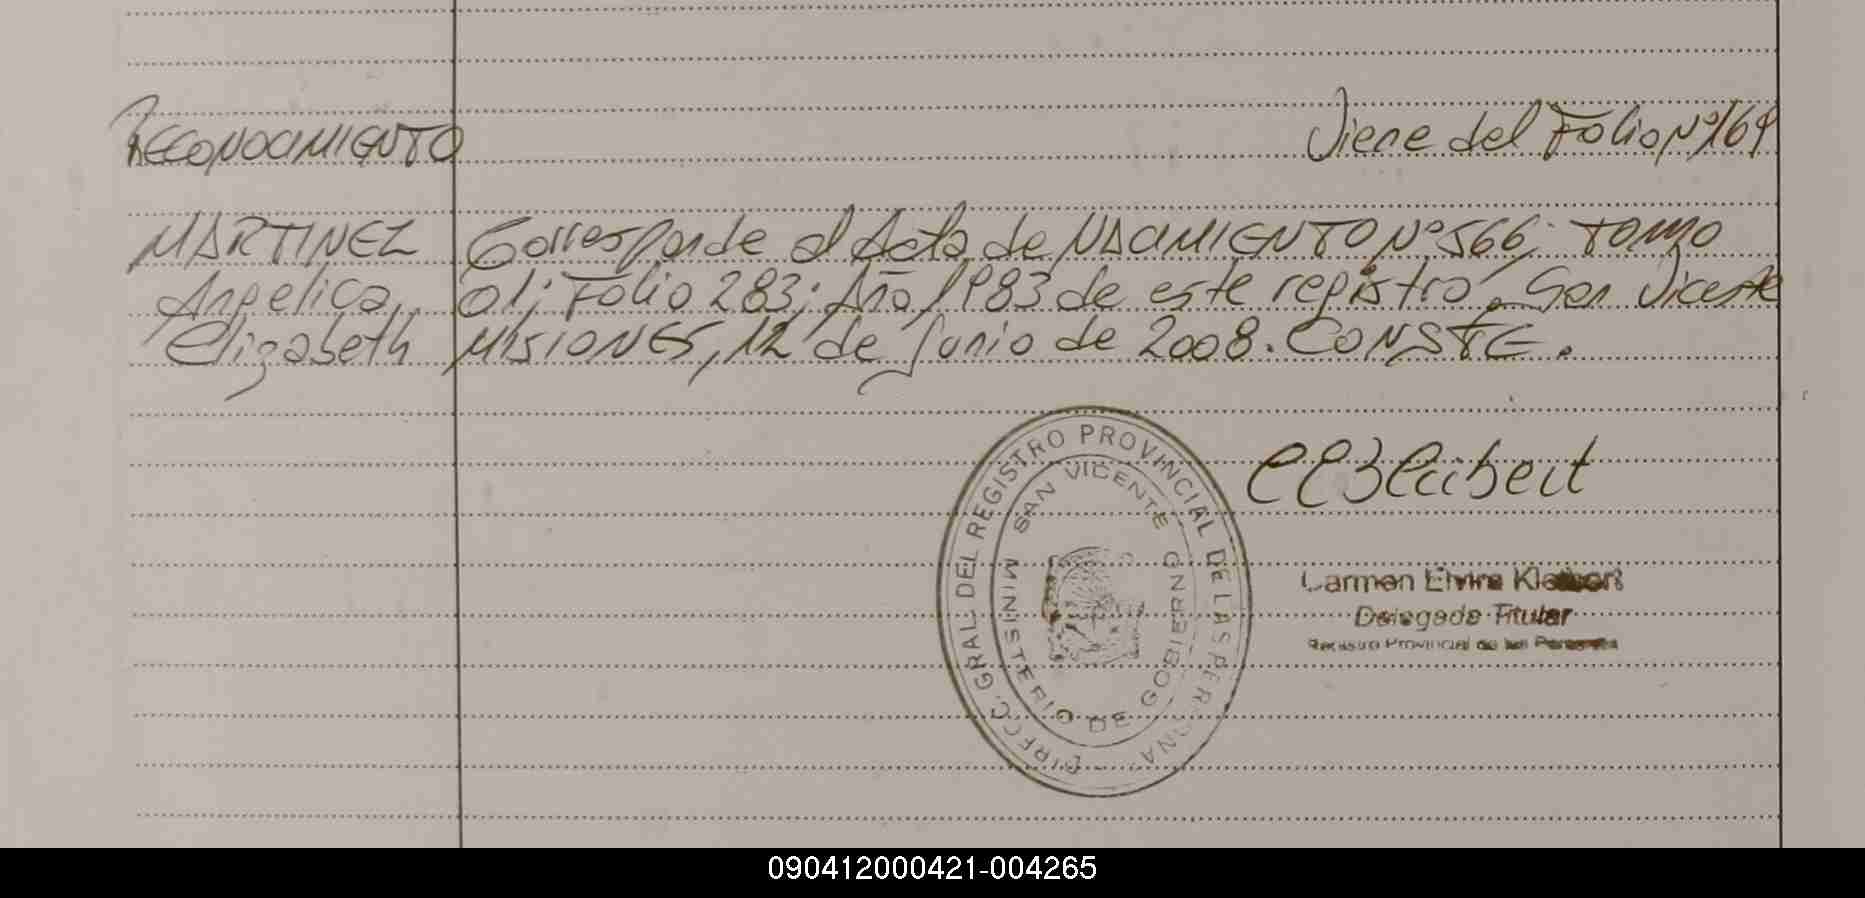 RECONOCIMIENTO
Viene del Folio Nº 169
MARTINEZ
Angelica
Elizabeth
Corresponde al Acta de NACIMIENTO Nº 566; TOMO
01; Folio 283; Año 1983 de este registro. San Vicente
MISIONES, 12 de Junio de 2008. CONSTE.
DIRECC. GRAL. DEL REGISTRO PROVINCIAL DE LAS PERSONAS
SAN VICENTE
MINISTERIO DE GOBIERNO
Carmen Elvira
Delegada Titular
Registro Provincial de las Personas
090412000421-004265